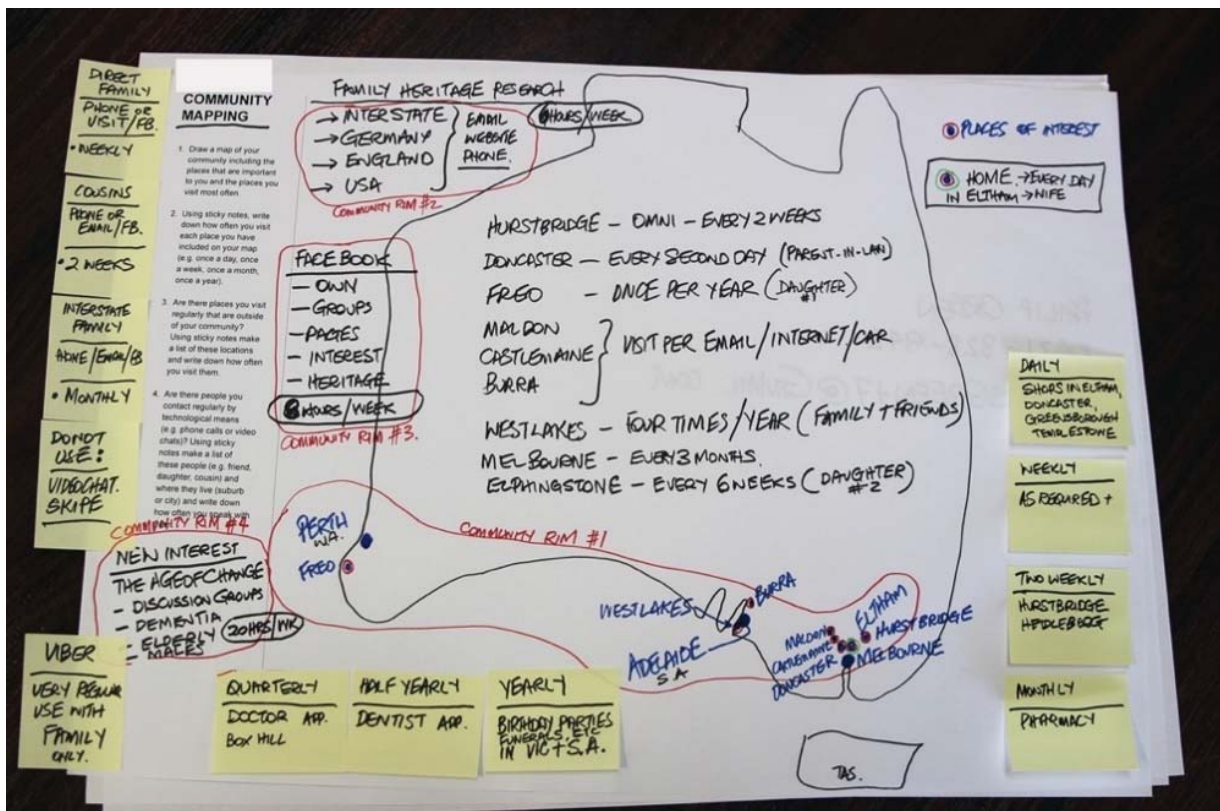 DIRECT
FAMILY
PHONE OR
VISIT/FB.
• WEEKLY
COUSINS
PHONE OR
EMAIL/FB.
• 2 WEEKS
INTERSTATE
FAMILY
HOME/EMAIL/FB
• MONTHLY
DO NOT
USE:
VIDEOCHAT.
SKIPE
VIBER
VERY REGULAR
USE WITH
FAMILY
ONLY.
COMMUNITY
MAPPING
1. Draw a map of your
community including the
places that are important
to you and the places you
visit most often.
2. Using sticky notes, write
down how often you visit
each place you have
included on your map
(e.g. once a day, once
a week, once a month,
once a year).
3. Are there places you visit
regularly that are outside
of your community?
Using sticky notes make
a list of these locations
and write down how often
you visit them.
4. Are there people you
contact regularly by
technological means
(e.g. phone calls or video
chats)? Using sticky
notes make a list of
these people (e.g. friend,
daughter, cousin) and
where they live (suburb
or city) and write down
how often you speak with
COMMUNITY RIM #4
NEW INTEREST
THE AGE OF CHANGE
- DISCUSSION GROUPS
- DEMENTIA
- ELDERLY 20HRS/WK
- MALES
FAMILY HERITAGE RESEARCH
→ INTERSTATE
→ GERMANY
→ ENGLAND
→ USA
EMAIL
WEBSITE
PHONE.
HOURS/WEEK
COMMUNITY RIM #2
FACEBOOK
- OWN
- GROUPS
- PAGES
- INTEREST
- HERITAGE
8 HOURS/WEEK
COMMUNITY RIM #3.
HURSTBRIDGE - OMNI - EVERY 2 WEEKS
DONCASTER - EVERY SECOND DAY (PARENT-IN-LAW)
FREO - ONCE PER YEAR (DAUGHTER #1)
MALDON
CASTLEMAINE
BURRA
VISIT PER EMAIL/INTERNET/CAR
WESTLAKES - FOUR TIMES/YEAR (FAMILY + FRIENDS)
MELBOURNE - EVERY 3 MONTHS.
ELPHINGSTONE - EVERY 6 WEEKS (DAUGHTER #2)
PLACES OF INTEREST
HOME → EVERY DAY
IN ELTHAM → WIFE
COMMUNITY RIM #1
PERTH
W.A.
FREO
WESTLAKES
BURRA
ADELAIDE
S A
MALDON
CASTLEMAINE
DONCASTER
ELTHAM
HURSTBRIDGE
MELBOURNE
TAS.
DAILY
SHOPS IN ELTHAM,
DONCASTER,
GREENSBOROUGH
TEMPLESTOWE
WEEKLY
AS REQUIRED +
TWO WEEKLY
HURSTBRIDGE
HEIDLEBERG
MONTHLY
PHARMACY
QUARTERLY
DOCTOR APP.
BOX HILL
HALF YEARLY
DENTIST APP.
YEARLY
BIRTHDAY PARTIES
FUNERALS, ETC
IN VIC + S.A.